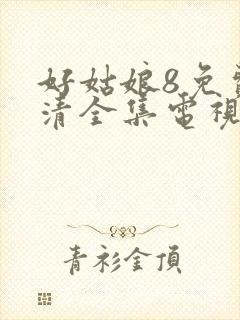 好姑娘8免
清全集電視
青衫金頂